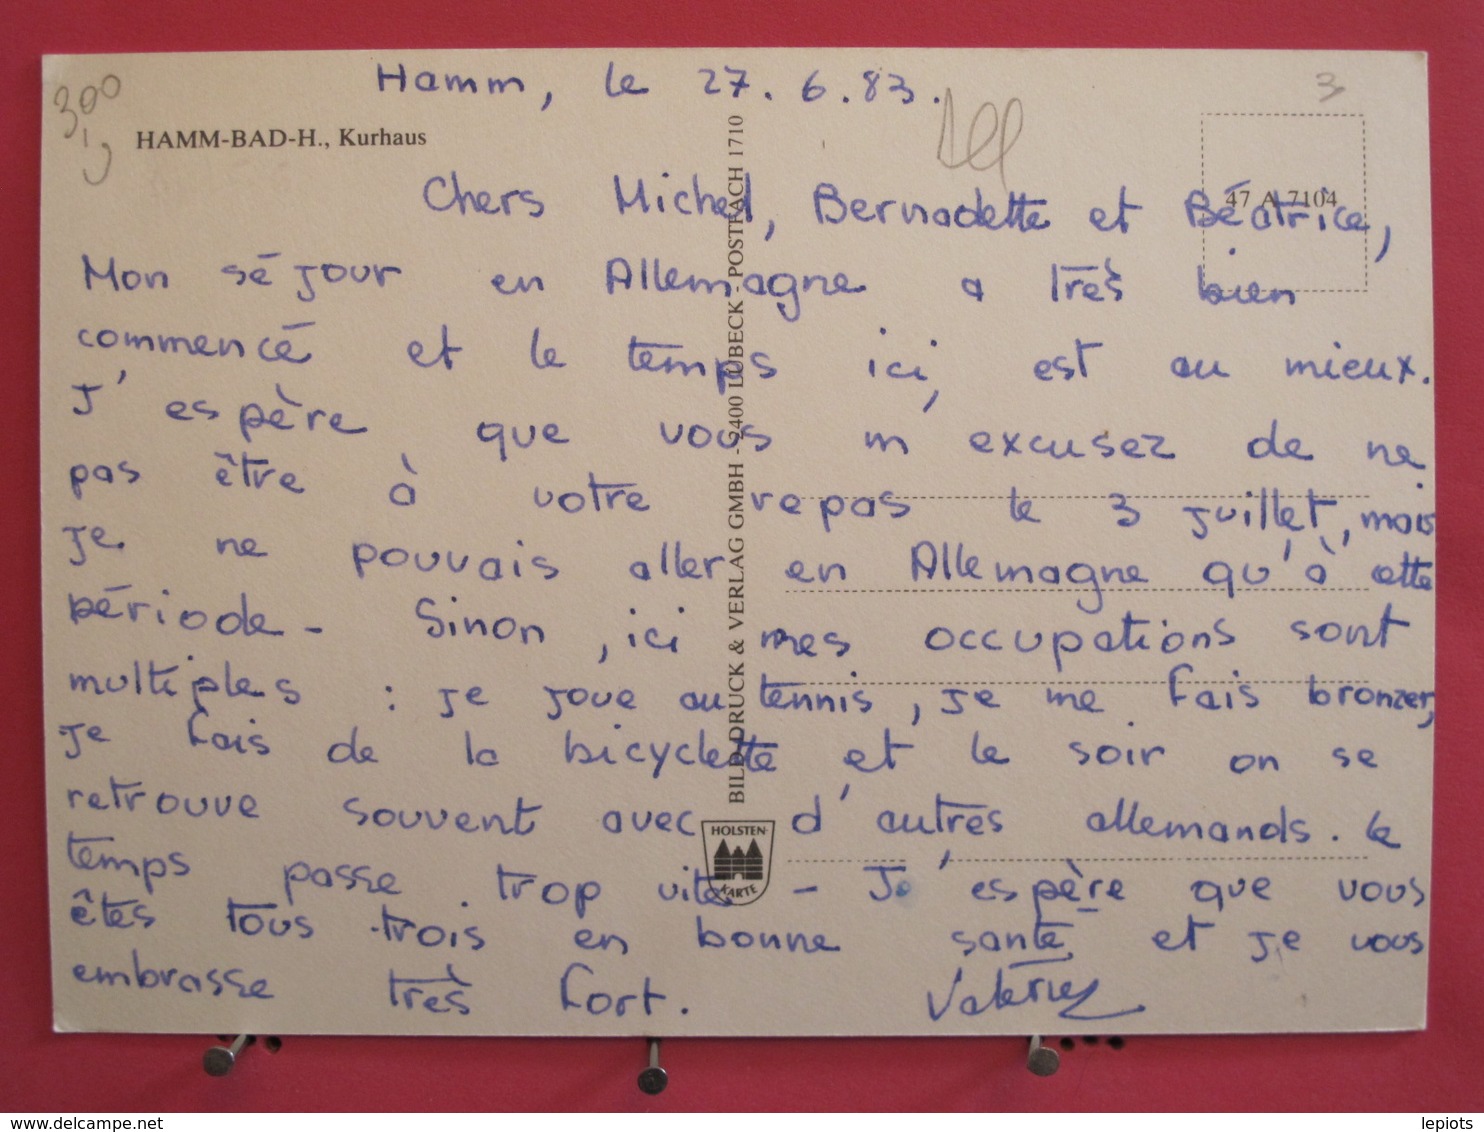 Hamm, le 27.6.83.
3
HAMM-BAD-H., Kurhaus
47 A 7104
Chers Michel, Bernadette et Béatrice,
Mon séjour en Allemagne a très bien
commencé et le temps ici, est au mieux.
J'espère que vous m'excusez de ne
pas être à votre repas le 3 juillet, mais
je ne pouvais aller en Allemagne qu'à cette
période - Sinon, ici mes occupations sont
multiples : je joue au tennis, je me fais bronzer,
je fais de la bicyclette et le soir on se
retrouve souvent avec d'autres allemands. Le
temps passe trop vite - J'espère que vous
êtes tous trois en bonne santé et je vous
embrasse très fort. Valérie
BILD DRUCK & VERLAG GMBH - 2400 LÜBECK - POSTFACH 1710
HOLSTEN-
KARTE
delcampe.net
lepiots